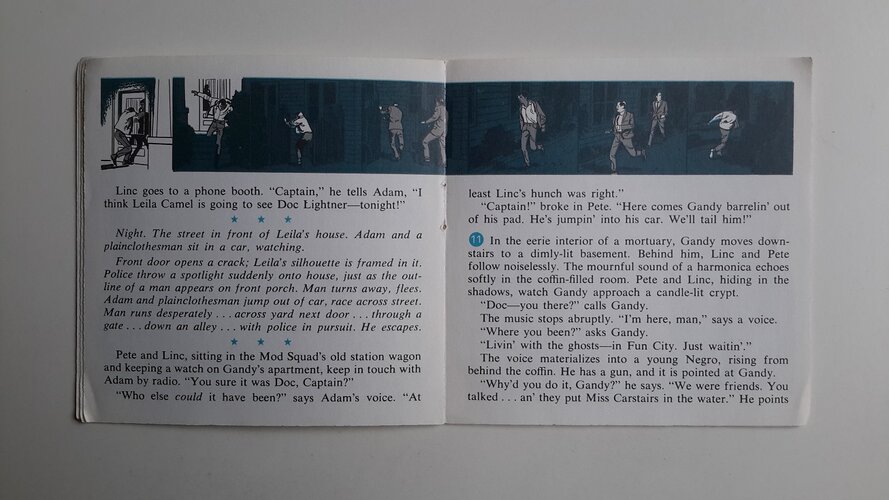 Linc goes to a phone booth. “Captain,” he tells Adam, “I
think Leila Camel is going to see Doc Lightner—tonight!”
★ ★ ★
Night. The street in front of Leila's house. Adam and a
plainclothesman sit in a car, watching.
Front door opens a crack; Leila's silhouette is framed in it.
Police throw a spotlight suddenly onto house, just as the out-
line of a man appears on front porch. Man turns away, flees.
Adam and plainclothesman jump out of car, race across street.
Man runs desperately . . . across yard next door . . . through a
gate . . . down an alley . . . with police in pursuit. He escapes.
★ ★ ★
Pete and Linc, sitting in the Mod Squad's old station wagon
and keeping a watch on Gandy's apartment, keep in touch with
Adam by radio. “You sure it was Doc, Captain?”
“Who else could it have been?” says Adam's voice. “At
least Linc's hunch was right.”
“Captain!” broke in Pete. “Here comes Gandy barrelin' out
of his pad. He's jumpin' into his car. We'll tail him!”
11 In the eerie interior of a mortuary, Gandy moves down-
stairs to a dimly-lit basement. Behind him, Linc and Pete
follow noiselessly. The mournful sound of a harmonica echoes
softly in the coffin-filled room. Pete and Linc, hiding in the
shadows, watch Gandy approach a candle-lit crypt.
“Doc—you there?” calls Gandy.
The music stops abruptly. “I'm here, man,” says a voice.
“Where you been?” asks Gandy.
“Livin' with the ghosts—in Fun City. Just waitin'.”
The voice materializes into a young Negro, rising from
behind the coffin. He has a gun, and it is pointed at Gandy.
“Why'd you do it, Gandy?” he says. “We were friends. You
talked . . . an' they put Miss Carstairs in the water.” He points